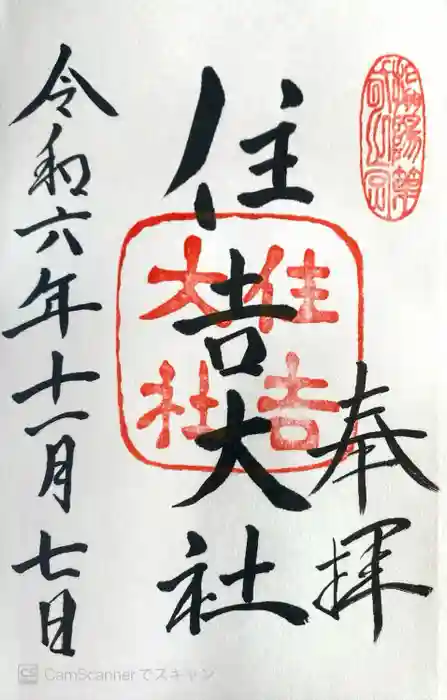 奉拝
住吉大社
令和六年十一月七日
住吉
大社
CS CamScannerでスキャン